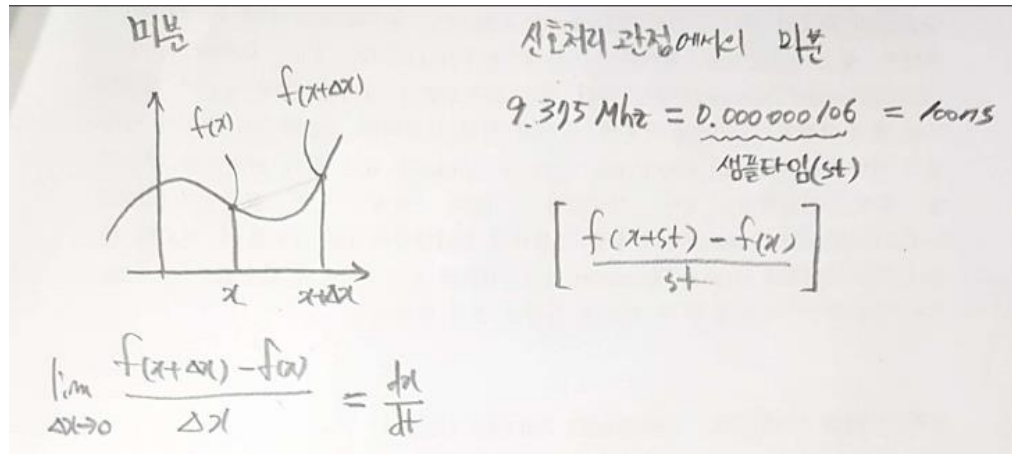 미분
f(x+Δx)
f(x)
x
x+Δx
lim Δx→0 f(x+Δx) - f(x) / Δx = dx/dt
신호처리 관점에서의 미분
9.375 Mhz = 0.000000106 = 100ns
샘플타임(st)
[ f(x+st) - f(x) / st ]